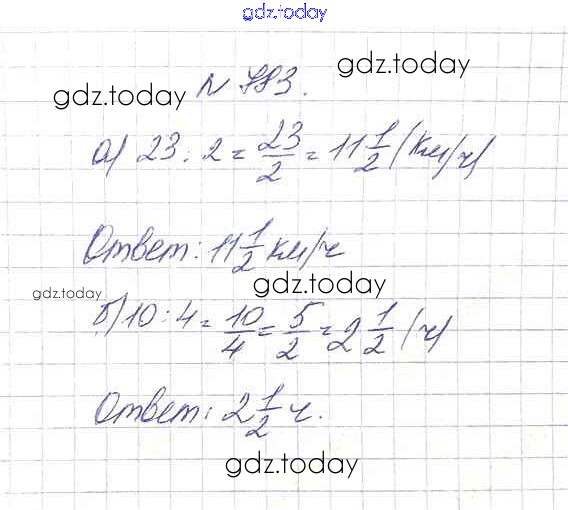 gdz.today
gdz.today
gdz.today № 993.
а) 23 : 2 = 23/2 = 11 1/2 (км/ч)
Ответ: 11 1/2 км/ч
gdz.today gdz.today
б) 10 : 4 = 10/4 = 5/2 = 2 1/2 (ч)
Ответ: 2 1/2 ч.
gdz.today